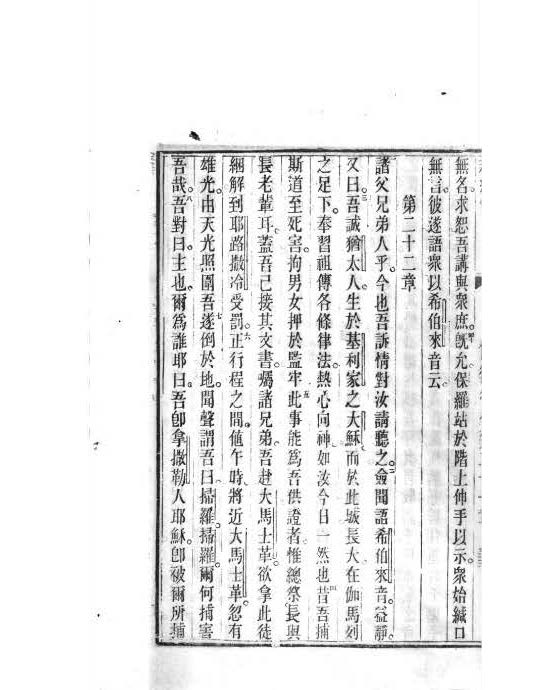 無名求恕吾講與衆庶旣允保羅站於階上伸手以示衆始緘口
無言彼遂語衆以希伯來音云
第二十二章
諸父兄弟人乎今也吾訴情對汝請聽之僉聞語希伯來音益靜
又曰吾誠猶太人生於基利家之大穌而於此城長大在伽馬列
之足下奉習祖傳各條律法熱心向神如汝今日一然也昔吾捕
斯道至死害拘男女押於監牢此事能爲吾供證者惟總祭長與
長老輩耳蓋吾己接其文書囑諸兄弟吾赴大馬士革欲拿此徒
綑解到耶路撒冷受罰正行程之間値午時將近大馬士革忽有
雄光由天光照圍吾遂倒於地聞聲謂吾曰掃羅掃羅爾何捕害
吾哉吾對曰主也爾爲誰耶曰吾卽拿撒勒人耶穌卽被爾所捕